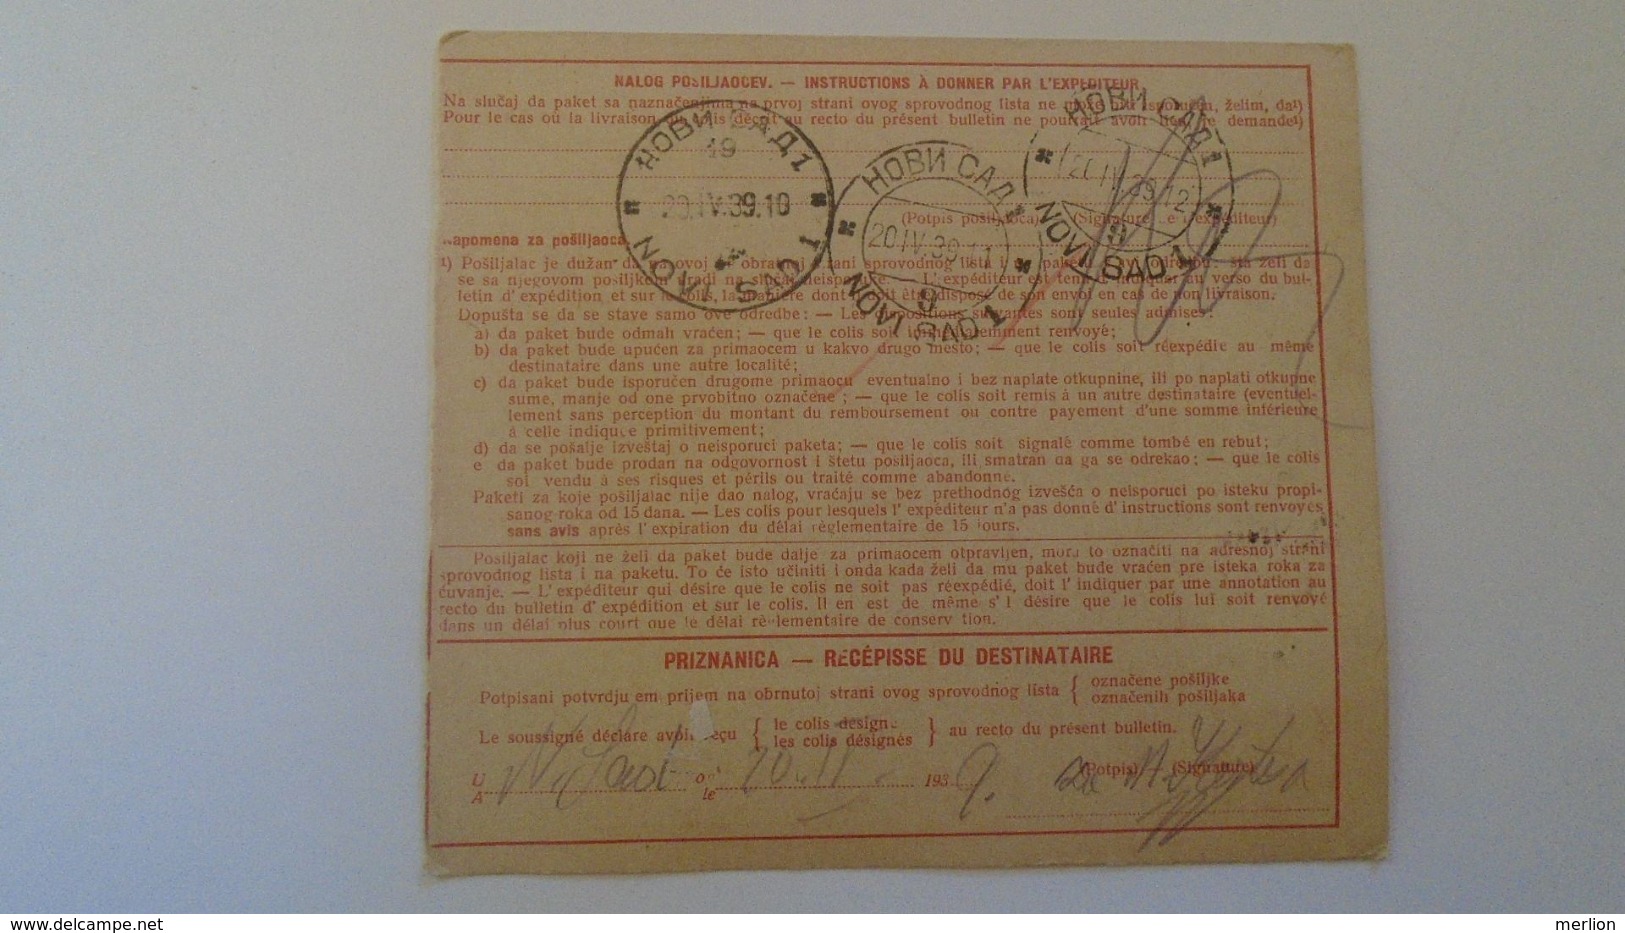 NALOG POŠILJAOCEV. — INSTRUCTIONS À DONNER PAR L'EXPÉDITEUR
Na slučaj da paket sa naznačenjima na prvoj strani ovog sprovodnog lista ne može biti isporučen, želim, da¹)
Pour le cas où la livraison du colis décrit au recto du présent bulletin ne pourrait avoir lieu, je demande¹)
НОВИ САД 1
19
20.IV.39.10
NOVI SAD 1
НОВИ САД 1
20.IV.39.11
9
NOVI SAD 1
НОВИ САД 1
20.IV.39.12
9
NOVI SAD 1
(Potpis pošiljaoca) (Signature de l'expéditeur)
Napomena za pošiljaoca
¹) Pošiljalac je dužan da na ovoj i obratnoj strani sprovodnog lista i na paketu navede odredbu, šta želi da
se sa njegovom pošiljkom uradi na slučaj neisporuke. — L'expéditeur est tenu d'indiquer au verso du bul-
letin d'expédition et sur le colis, la manière dont il doit être disposé de son envoi en cas de non livraison.
Dopušta se da se stave samo ove odredbe: — Les dispositions suivantes sont seules admises:
a) da paket bude odmah vraćen; — que le colis soit immédiatement renvoyé;
b) da paket bude upućen za primaocem u kakvo drugo mesto; — que le colis soit réexpédié au même
destinataire dans une autre localité;
c) da paket bude isporučen drugome primaocu eventualno i bez naplate otkupnine, ili po naplati otkupne
sume, manje od one prvobitno označene; — que le colis soit remis à un autre destinataire (eventuel-
lement sans perception du montant du remboursement ou contre payement d'une somme inférieure
à celle indiquée primitivement;
d) da se pošalje izveštaj o neisporuci paketa; — que le colis soit signalé comme tombé en rebut;
e da paket bude prodan na odgovornost i štetu pošiljaoca, ili smatran da ga se odrekao; — que le colis
soi vendu à ses risques et périls ou traité comme abandonné.
Paketi za koje pošiljalac nije dao nalog, vraćaju se bez prethodnog izvešća o neisporuci po isteku propi-
sanog roka od 15 dana. — Les colis pour lesquels l'expéditeur n'a pas donné d'instructions sont renvoyés
sans avis après l'expiration du délai règlementaire de 15 jours.
Pošiljalac koji ne želi da paket bude dalje za primaocem otpravljen, mora to označiti na adresnoj strani
sprovodnog lista i na paketu. To će isto učiniti i onda kada želi da mu paket bude vraćen pre isteka roka za
čuvanje. — L'expéditeur qui désire que le colis ne soit pas réexpédié, doit l'indiquer par une annotation au
recto du bulletin d'expédition et sur le colis. Il en est de même s'l désire que le colis lui soit renvoyé
dans un délai plus court que le délai règlementaire de conserv tion.
PRIZNANICA — RECÉPISSE DU DESTINATAIRE
Potpisani potvrdju em prijem na obrnutoj strani ovog sprovodnog lista { označene pošiljke
označenih pošiljaka
Le soussigné déclare avoir reçu { le colis désigné
les colis désignés } au recto du présent bulletin.
U
A N. Sad on
le 20. IV 1939. za (Potpis) (Signature)
merlion